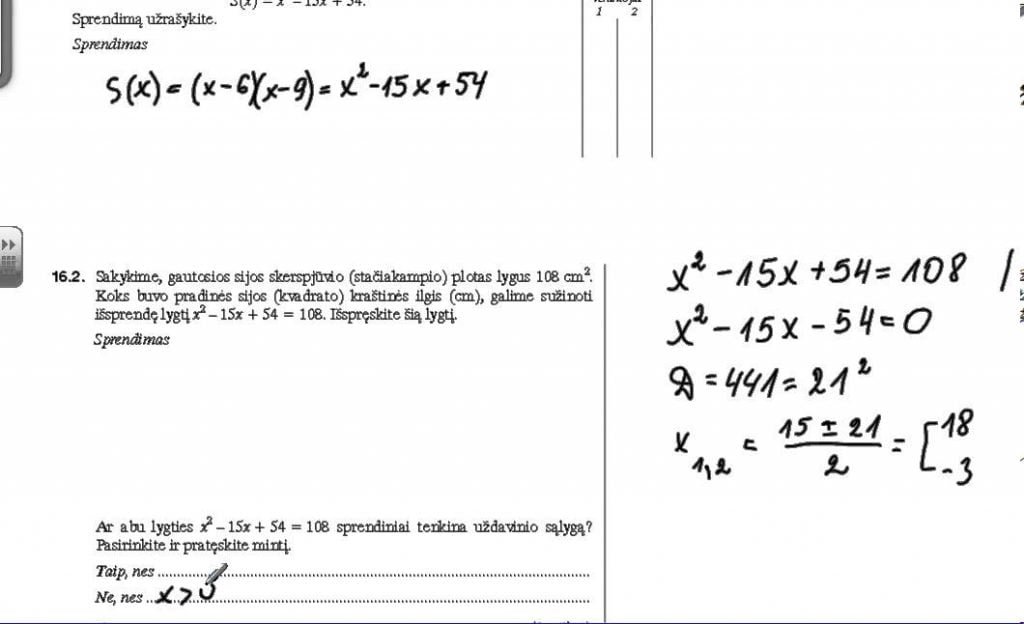 Sprendimą užrašykite.
1 2
Sprendimas
S(x) = (x-6)(x-9) = x² - 15x + 54
16.2. Sakykime, gautosios sijos skerspjūvio (stačiakampio) plotas lygus 108 cm².
Koks buvo pradinės sijos (kvadrato) kraštinės ilgis (cm), galime sužinoti
išsprendę lygtį x² – 15x + 54 = 108. Išspręskite šią lygtį.
Sprendimas
x² - 15x + 54 = 108 /
x² - 15x - 54 = 0
D = 441 = 21²
x 1,2 = 15 ± 21 / 2 = [ 18
-3
Ar abu lygties x² – 15x + 54 = 108 sprendiniai tenkina uždavinio sąlygą?
Pasirinkite ir pratęskite mintį.
Taip, nes
Ne, nes x > 0